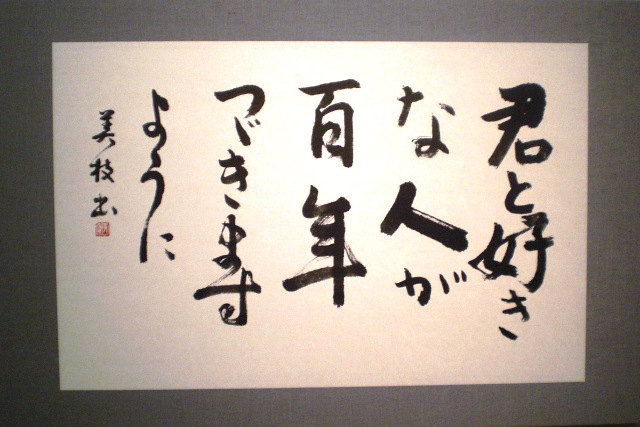 君と好き
な人が
百年
つゞきます
ように
美枝書